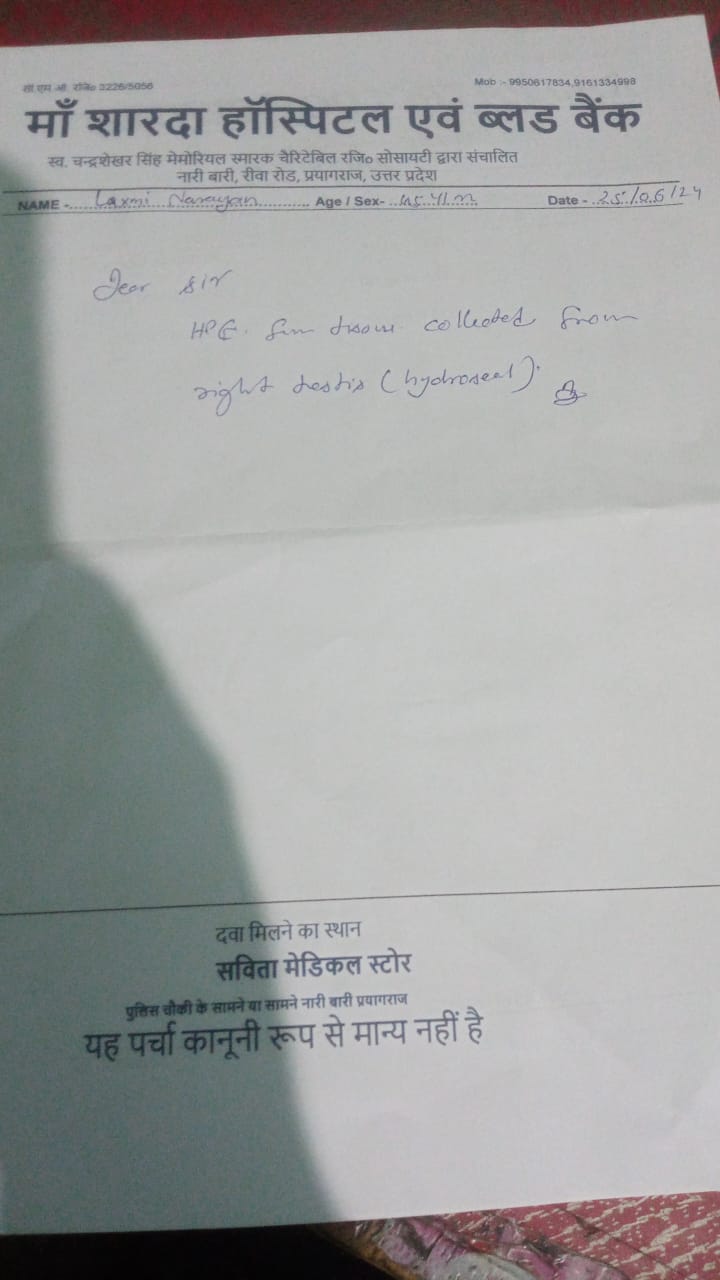 सी.एम.ओ. रजि० 3226/5056
Mob :- 9950617834,9161334998
माँ शारदा हॉस्पिटल एवं ब्लड बैंक
स्व. चन्द्रशेखर सिंह मेमोरियल स्मारक चैरिटेबिल रजि० सोसायटी द्वारा संचालित
नारी बारी, रीवा रोड, प्रयागराज, उत्तर प्रदेश
NAME - Laxmi Narayan Age / Sex- 45 y/m Date - 25/06/24
Dear sir
HPE. tissue collected from
right testis (hydroseel).
दवा मिलने का स्थान
सविता मेडिकल स्टोर
पुलिस चौकी के सामने या सामने नारी बारी प्रयागराज
यह पर्चा कानूनी रूप से मान्य नहीं है